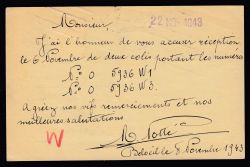 Monsieur,
22 NOV 1943
J'ai l'honneur de vous accuser réception
le 6 Novembre de deux colis portant les numéros
N° 0 5936 W1
N° 0 5936 W3.
Agréez mes vifs remerciements et nos
meilleures salutations
W
Beloeil le 8 Novembre 1943